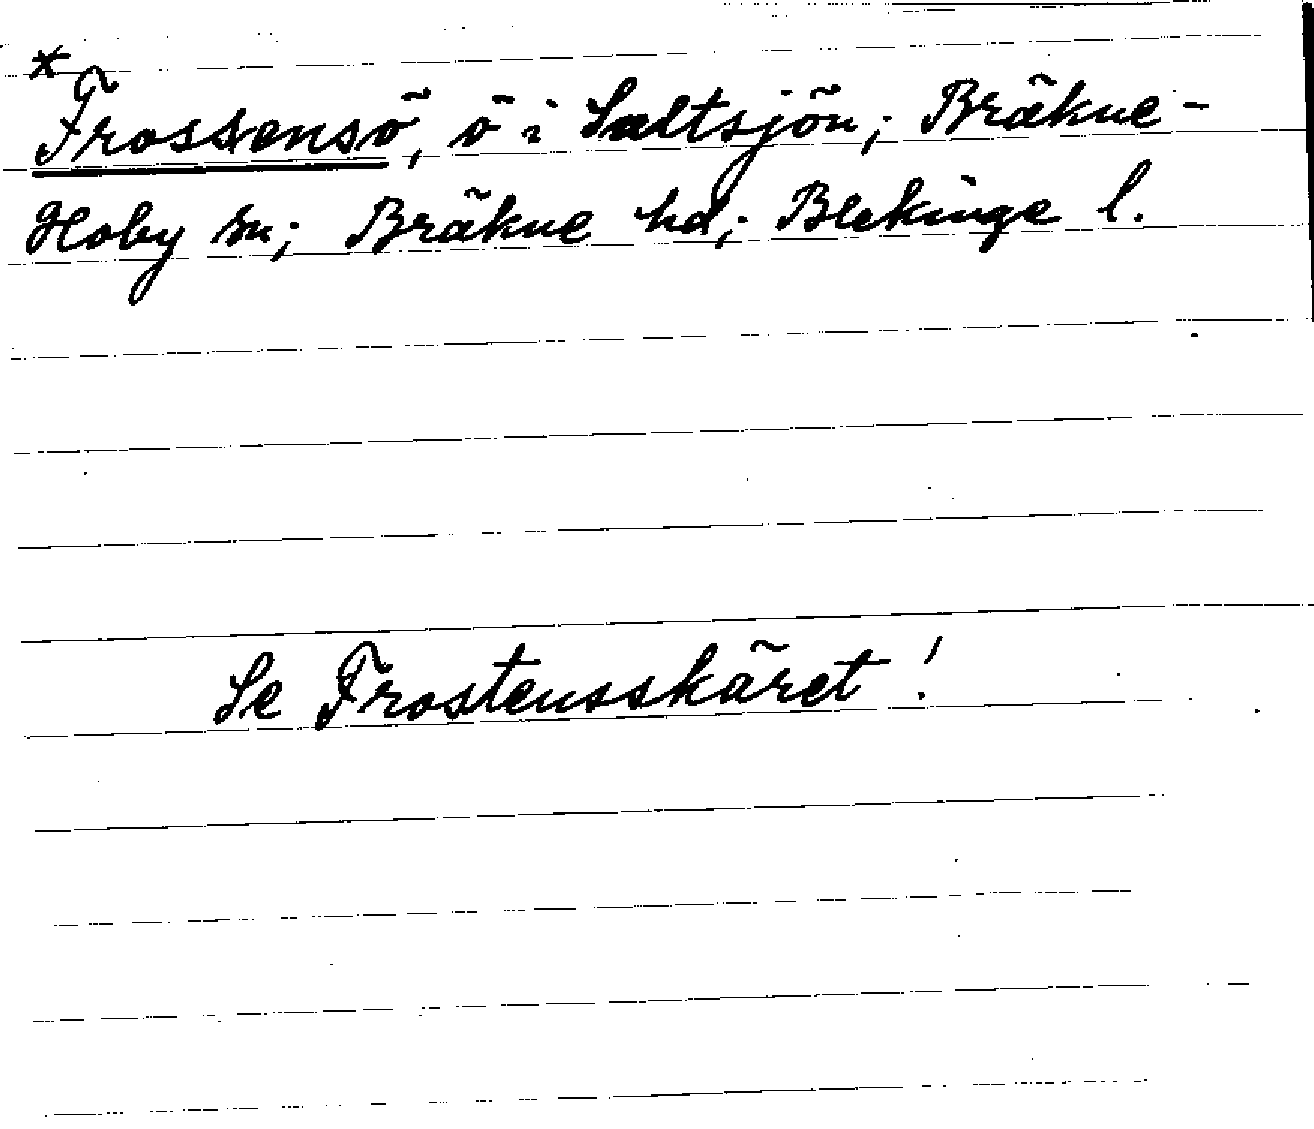 * Frossensö, ö i Saltsjön; Bräkne-
Hoby sn; Bräkne hd; Blekinge l.
Se Frostensskäret!